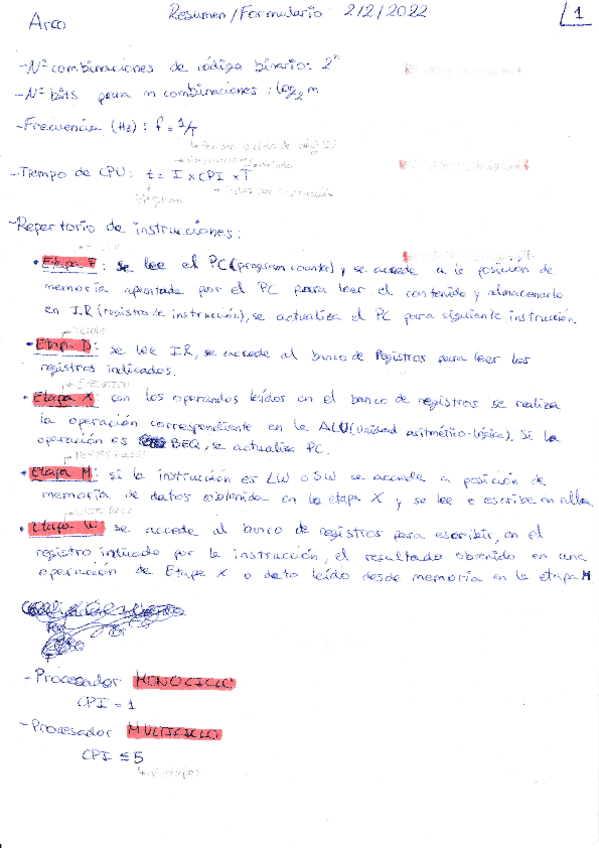 Arco
Resumen/Formulario 2/2/2022
1
-Nº combinaciones de código binario: 2ⁿ
-Nº bits para m combinaciones: log₂m
-Frecuencia (Hz): f = 1/T
-Tiempo de CPU: t = I x CPI x T
-Repertorio de instrucciones:
• Etapa F: se lee el PC (program counter) y se accede a la posición de
memoria apuntada por el PC para leer el contenido y almacenarlo
en IR (registro de instrucción), se actualiza el PC para siguiente instrucción.
• Etapa D: se lee IR, se accede al banco de Registros para leer los
registros indicados.
• Etapa X: con los operandos leídos en el banco de registros se realiza
la operación correspondiente en la ALU (unidad aritmético-lógica). Si la
operación es BEQ, se actualiza PC.
• Etapa M: si la instrucción es LW o SW se accede a posición de
memoria de datos obtenida en la etapa X y se lee o escribe en ella
• Etapa W: se accede al banco de registros para escribir, en el
registro indicado por la instrucción, el resultado obtenido en una
operación de Etapa X o dato leído desde memoria en la etapa M
-Procesador MONOCICLO
CPI = 1
-Procesador MULTICICLO
CPI ≤ 5
↳ nº etapas